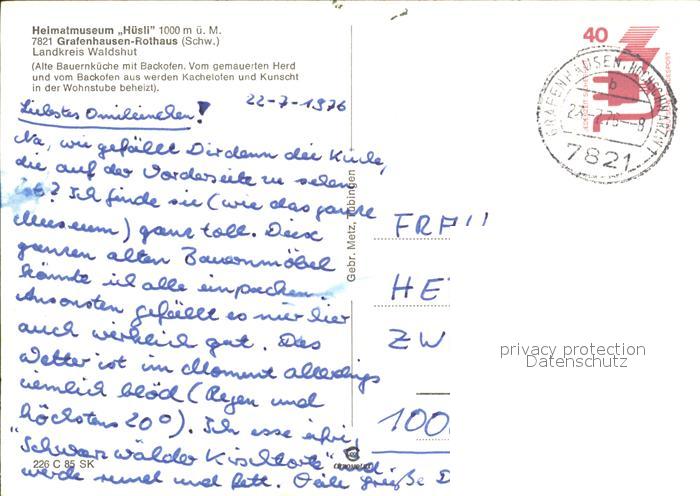 Heimatmuseum „Hüsli" 1000 m ü. M.
7821 Grafenhausen-Rothaus (Schw.)
Landkreis Waldshut
(Alte Bauernküche mit Backofen. Vom gemauerten Herd
und vom Backofen aus werden Kachelofen und Kunscht
in der Wohnstube beheizt).
22-7-1976
Liebstes Omileinchen!
Na, wie gefällt Dir denn die Küche,
die auf der Vorderseite zu sehen
ist? Ich finde sie (wie das ganze
Museum) ganz toll. Diese
ganzen alten Bauernmöbel
könnte ich alle einpacken.
Ansonsten gefällt es mir hier
auch wirklich gut. Das
Wetter ist im Moment allerdings
ziemlich blöd (Regen und
höchstens 20°). Ich esse eifrig
"Schwarzwälder Kirschtorte" und
werde rund und fett. Viele Grüße
226 C 85 SK
Gebr. Metz, Tübingen
40
GRAFENHAUSEN, HOCHSCHWARZW 1
b
7821
HE
ZW
100
privacy protection
Datenschutz